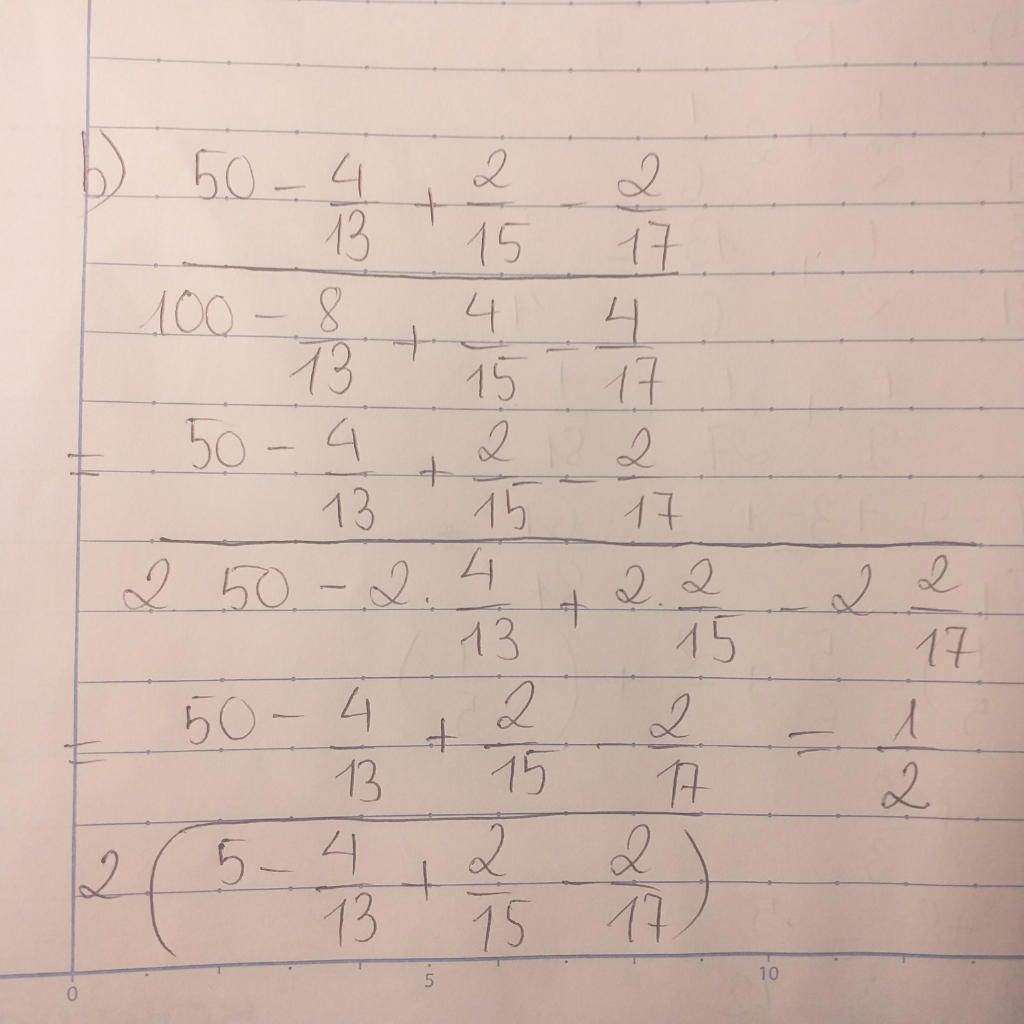 b) 50 - 4/13 + 2/15 - 2/17
100 - 8/13 + 4/15 - 4/17
= 50 - 4/13 + 2/15 - 2/17
2 50 - 2 . 4/13 + 2 . 2/15 - 2 2/17
= 50 - 4/13 + 2/15 - 2/17 = 1/2
2 (5 - 4/13 + 2/15 - 2/17)
0 5 10